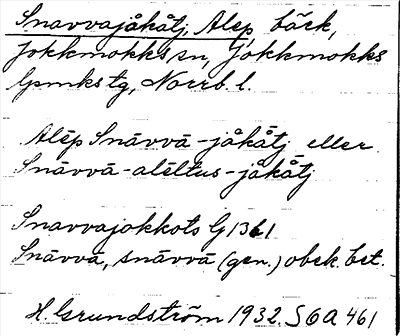 Snavvajåkåtj, Alep, bäck,
Jokkmokks sn, Jokkmokks
lpmks tg, Norrb. l.
Alēp Snāvvā-jåkåtj eller
Snāvvā-alēltus-jåkåtj
Snavvajokkots G 13
Snāvvā, snāvvā (gen.) obek. bet.
H. Grundström 1932. S6A 461